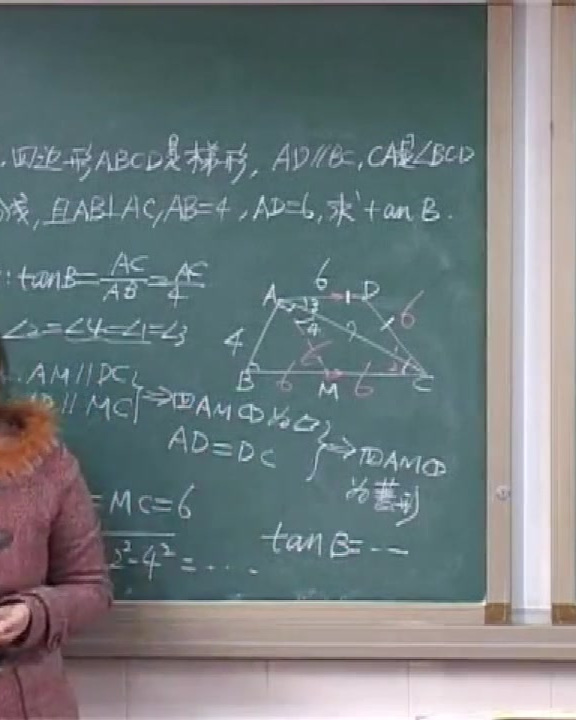 四边形ABCD是梯形, AD//BC, CA是∠BCD
线, 且AB⊥AC, AB=4, AD=6, 求tanB.
∵tanB=AC/AB=AC/4
∠2=∠4=∠1=∠3
AM//DC
// MC}⇒四AMCD为▱
AD=DC}⇒四AMCD
为菱形
=MC=6
2²-4²=....
tanB=---
6
A
3
1
D
6
4
4
6
?
2
B
6
M
6
C